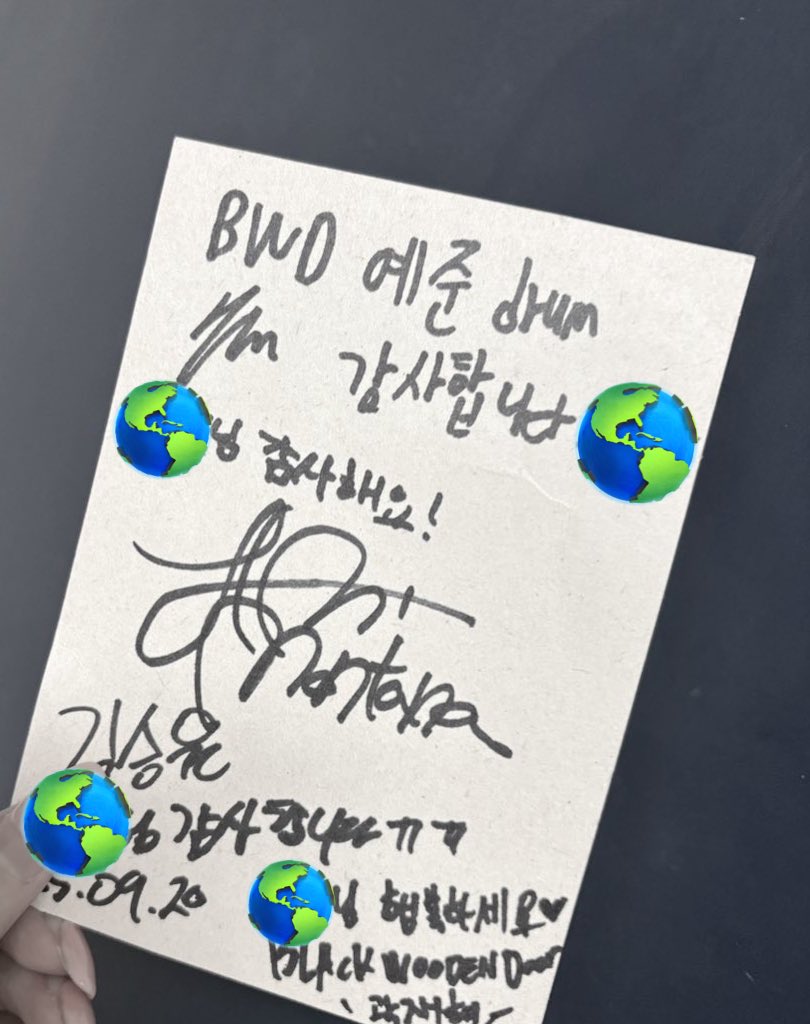 BWD 예준 drum
감사합니다
님 감사해요!
Montana
김승윤
님 감사합니다 ㅠㅠ
.09.20
님 행복하세요♥
BLACK WOODEN Door